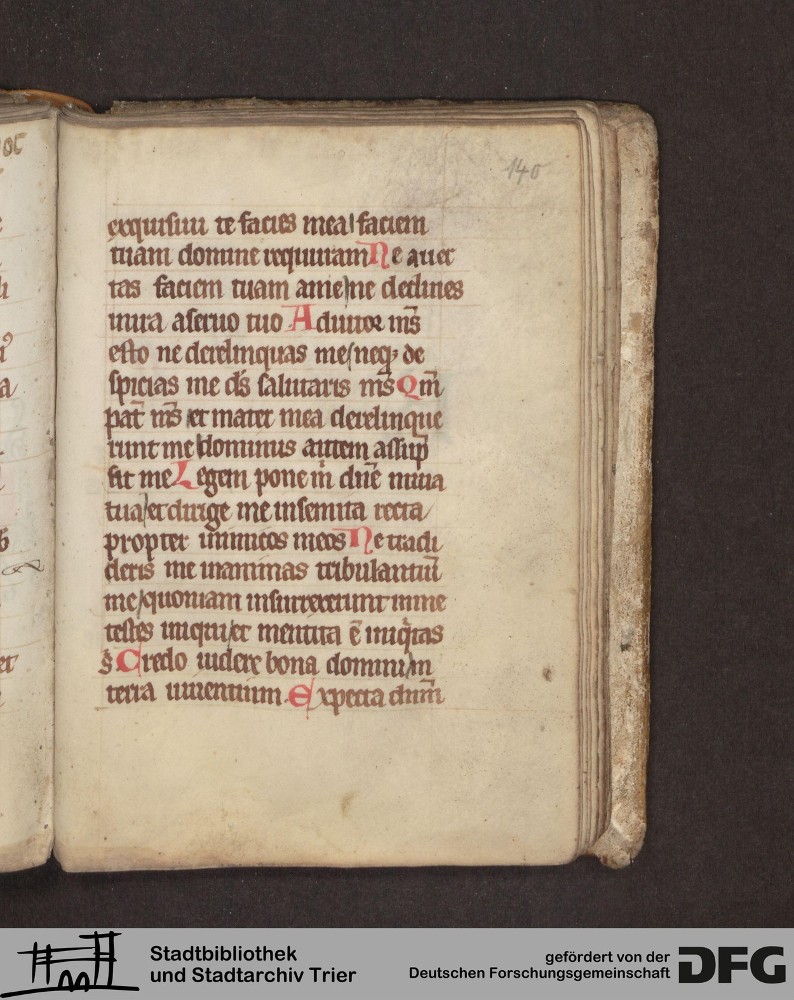 140
exquisiui te facies mea/faciem
tuam domine requiram Ne auer
tas faciem tuam ame/ne declines
inira aseruo tuo Adiutor m̄s
esto ne derelinquas me/neqꝫ de
spicias me d̄s salutaris m̄s Qm̄
pat̄ m̄s et mater mea derelinque
runt me/dominus autem assūp
sit me Legem pone m̄ dn̄e inuia
tua/et dirige me insemita recta
propter inimicos meos Ne tradi
deris me inanimas tribulantiū
me/quoniam insurrexerunt inme
testes iniqui/et mentita ē iniq̄tas
s̄ Credo uidere bona domini/in
terra uiuentium Expecta dn̄m
Stadtbibliothek
und Stadtarchiv Trier
gefördert von der
Deutschen Forschungsgemeinschaft
DFG